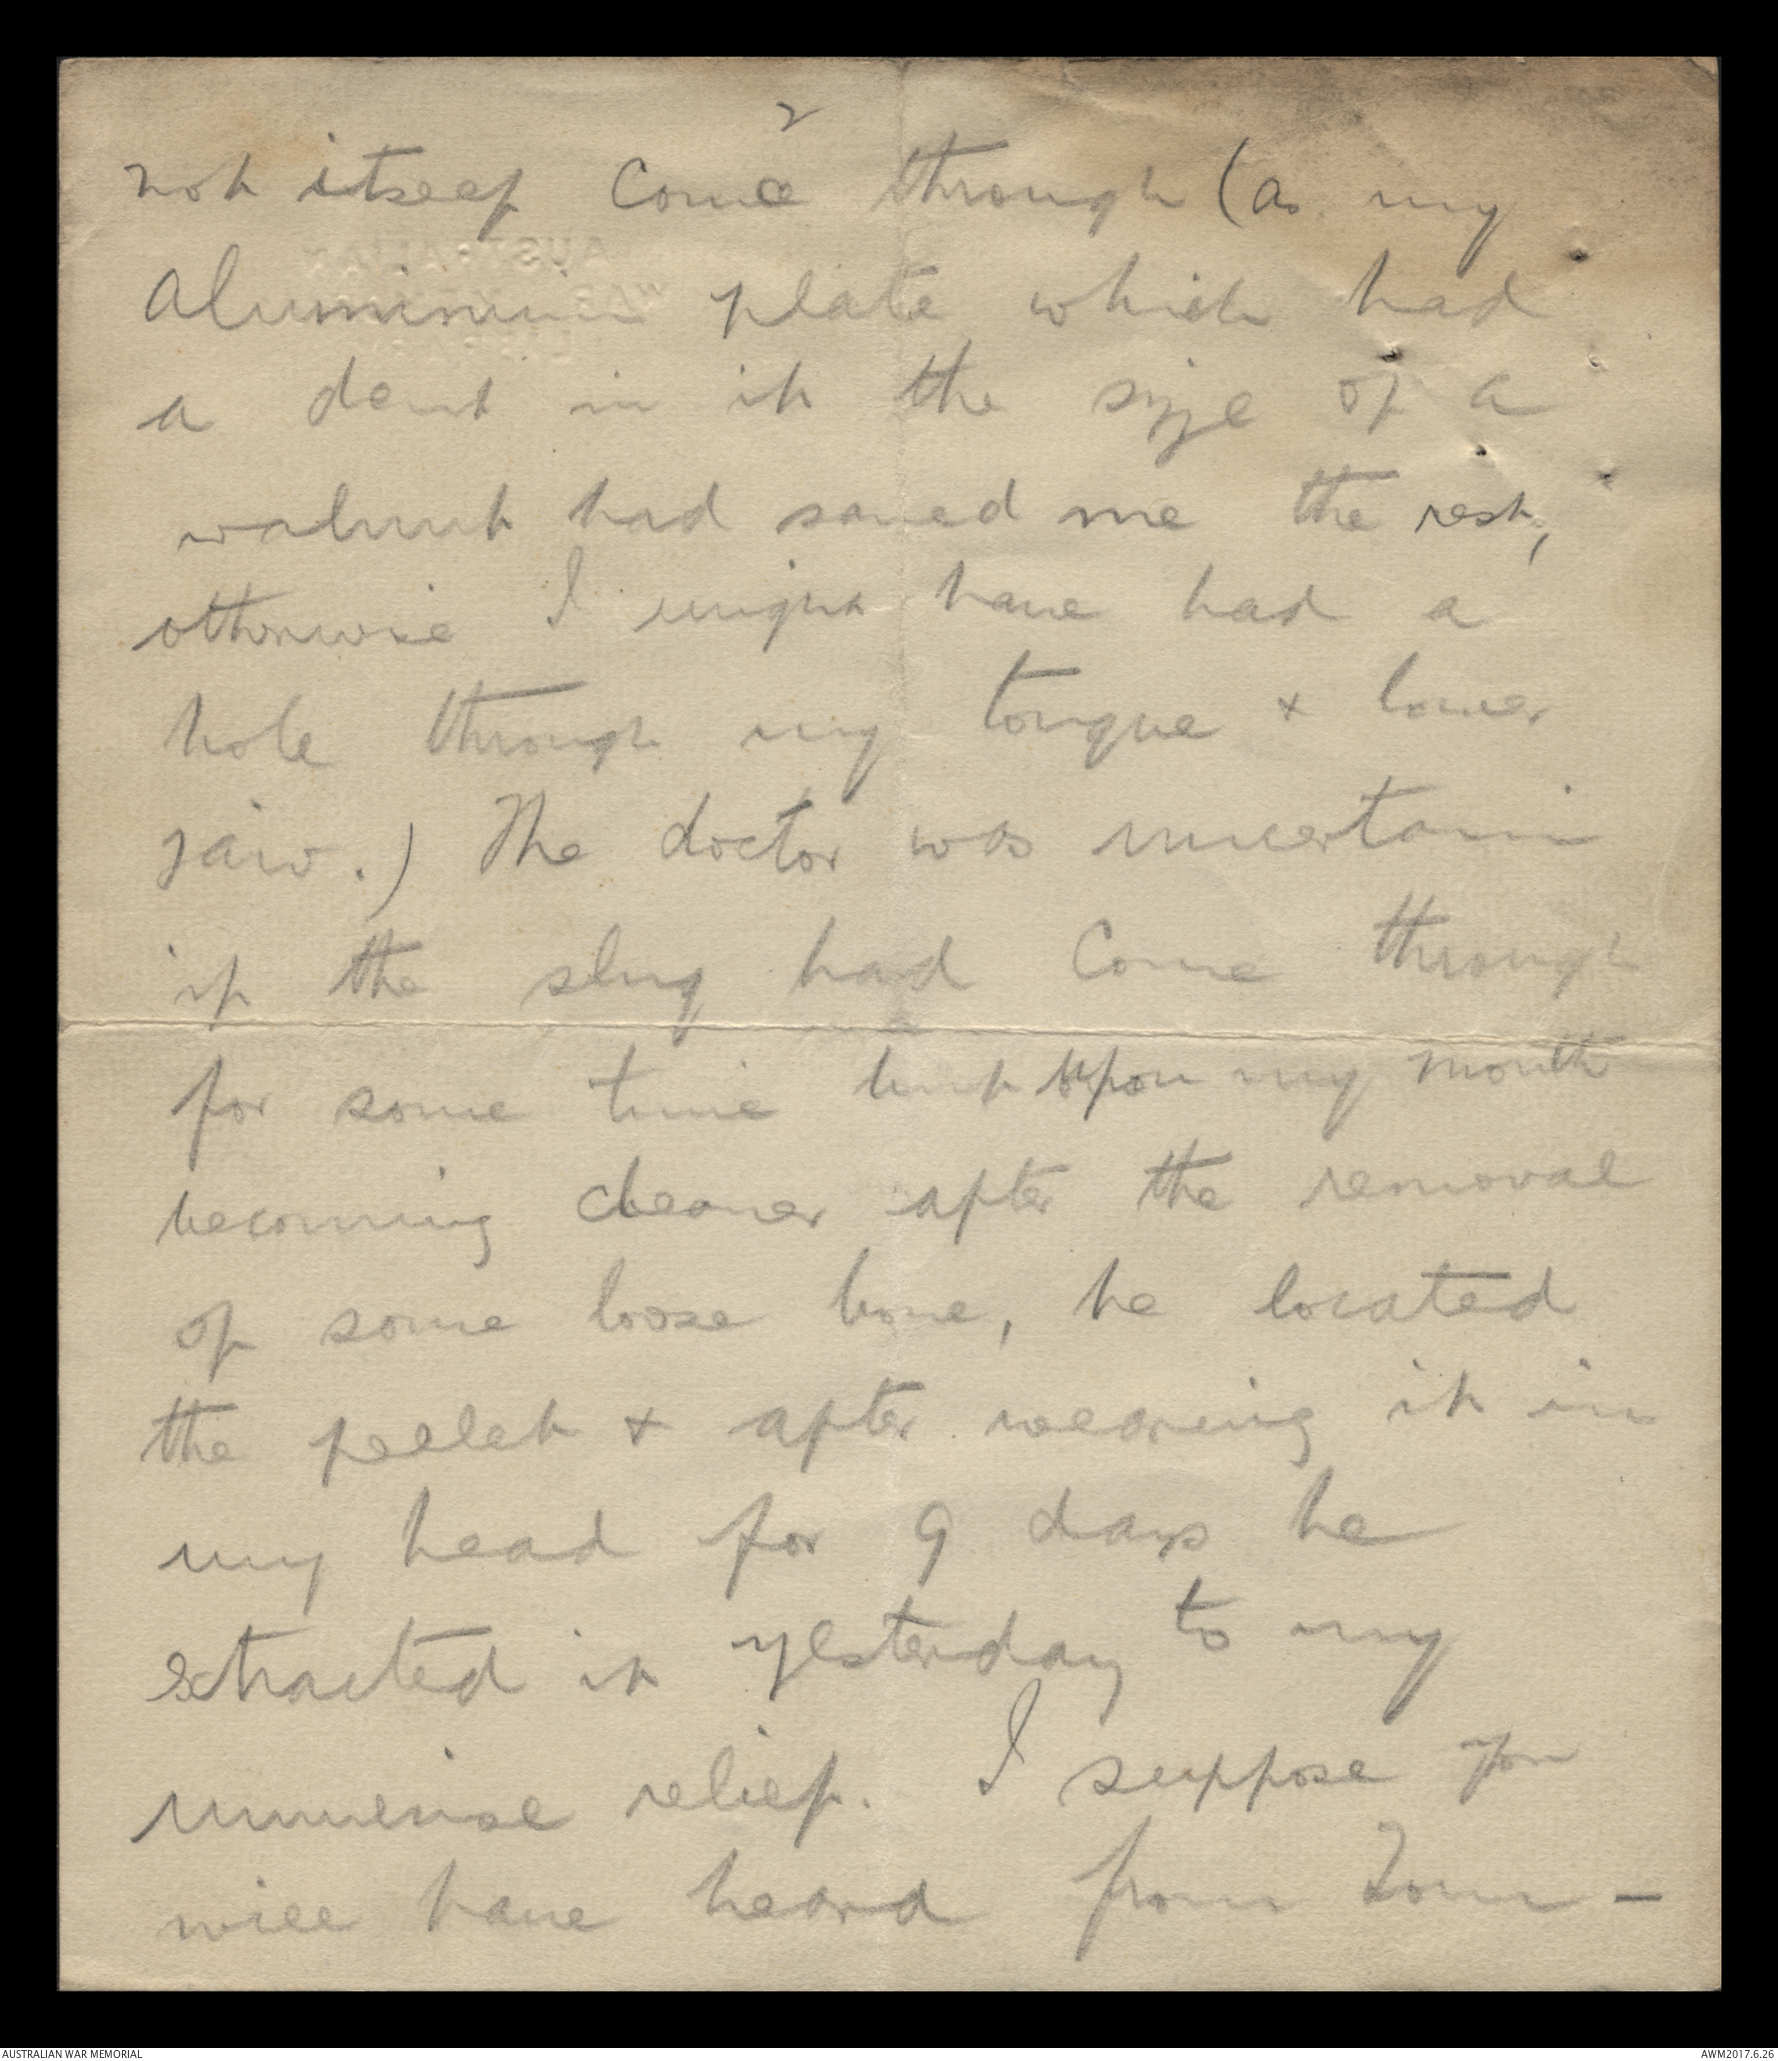 2
not itself come through (as my
aluminium plate which had
a dent in it the size of a
walnut had saved me the rest,
otherwise I might have had a
hole through my tongue & lower
jaw.) The doctor was uncertain
if the slug had come through
for some time but upon my mouth
becoming cleaner after the removal
of some loose bone, he located
the pellet & after wearing it in
my head for 9 days he
extracted it yesterday to my
immense relief. I suppose you
will have heard from Tom –
AUSTRALIAN WAR MEMORIAL
AWM2017.6.26